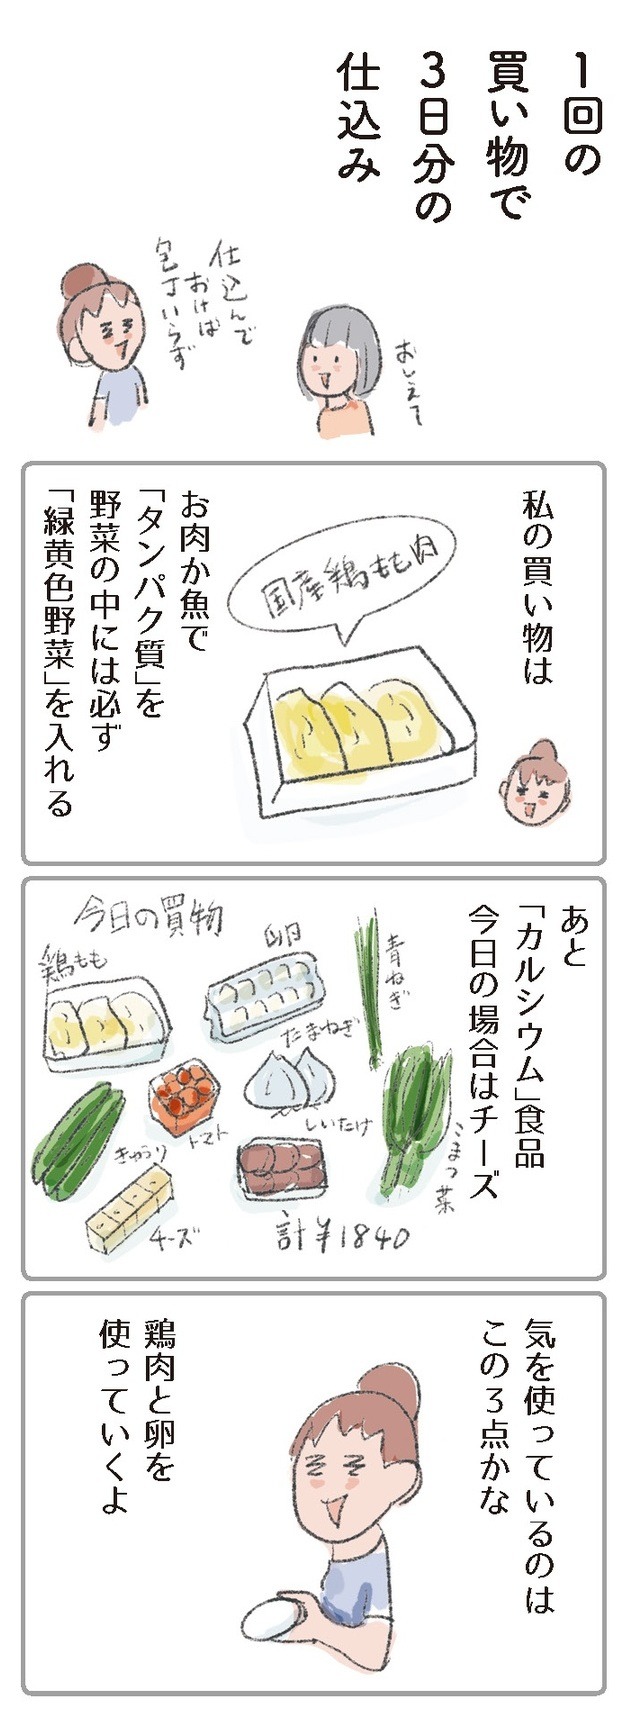 1回の
買い物で
3日分の
仕込み
おしえて
仕込んで
おけば
包丁いらず
私の買い物は
国産鶏もも肉
お肉か魚で
「タンパク質」を
野菜の中には必ず
「緑黄色野菜」を入れる
あと
「カルシウム」食品
今日の場合はチーズ
今日の買物
鶏もも
卵
青ねぎ
たまねぎ
きゅうり
トマト
しいたけ
こまつ菜
チーズ
計¥1840
気を使っているのは
この3点かな
鶏肉と卵を
使っていくよ